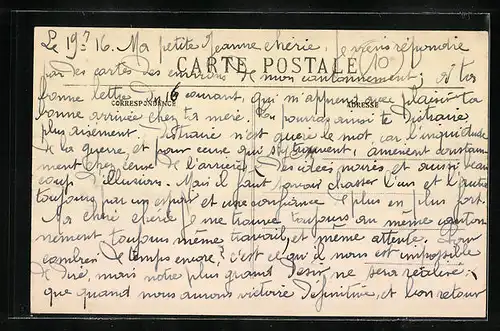 Le 19-3-16. Ma petite Jeanne chérie, je viens répondre
par des cartes des environs de mon cantonnement, à ta
CARTE POSTALE (10e
bonne lettre du 16 courant, qui m'apprend avec plaisir ta
CORRESPONDANCE ADRESSE
bonne arrivée chez ta mère. Tu pourras ainsi te distraire
plus aisément. Distraire n'est guère le mot car l'inquiétude
de la guerre, et pour ceux qui s'y trouvent, amènent constam-
ment chez ceux de l'arrière, des idées noires et aussi beau
coup d'illusions. Mais il faut savoir chasser l'un et l'autre
toujours par un espoir et une confiance de plus en plus fort.
Ma chérie je me trouve toujours au même canton-
nement toujours même travail, et même attente. Pour
combien de temps encore? c'est ce qui il nous est impossible
de dire, mais notre plus grand désir ne sera réalisé
que quand nous aurons victoire définitive, et bon retour